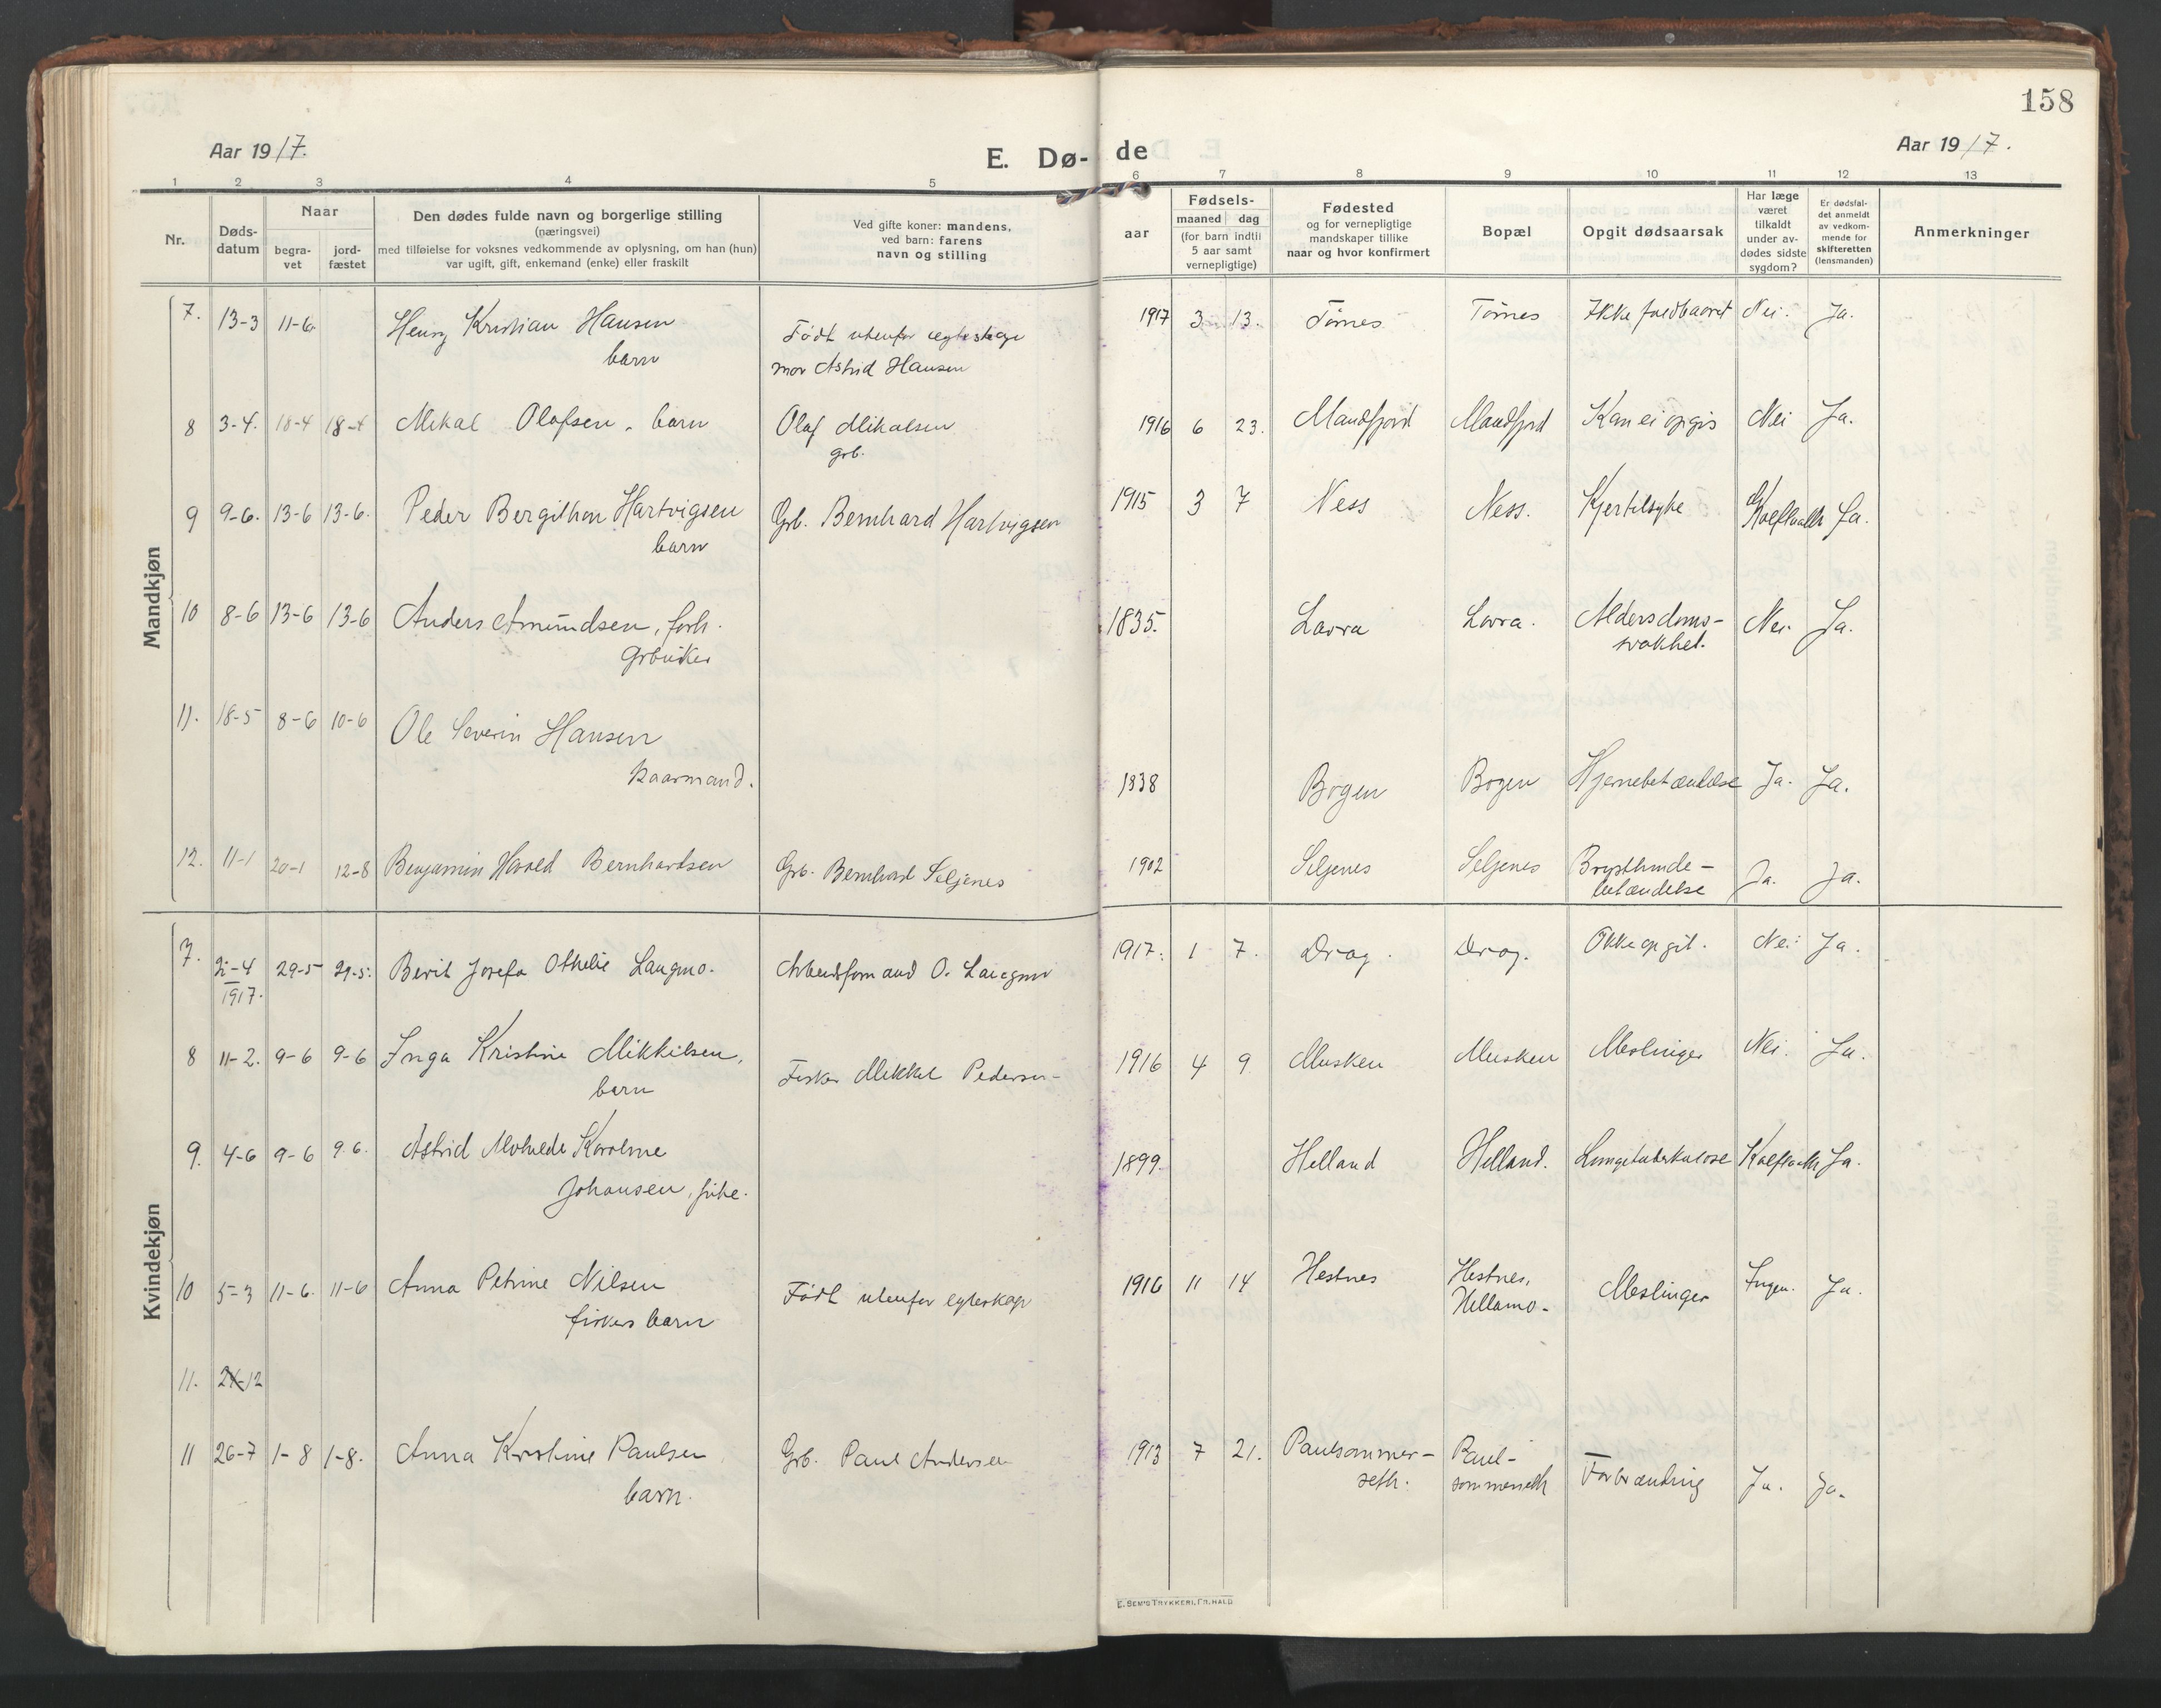 158
Aar 1917.
E. Dø-
de
Aar 1917.
1 2 3 4 5 6 7 8 9 10 11 12 13
Nr.
Døds-
datum
Naar
begra-
vet
jord-
fæstet
Den dødes fulde navn og borgerlige stilling
(næringsvei)
med tilføielse for voksnes vedkommende av oplysning, om han (hun)
var ugift, gift, enkemand (enke) eller fraskilt
Ved gifte koner: mandens,
ved barn: farens
navn og stilling
aar
Fødsels-
maaned dag
(for barn indtil
5 aar samt
vernepligtige)
Fødested
og for vernepligtige
mandskaper tillike
naar og hvor konfirmert
Bopæl
Opgit dødsaarsak
Har læge
været
tilkaldt
under av-
dødes sidste
sygdom?
Er dødsfal-
det anmeldt
av vedkom-
mende for
skifteretten
(lensmanden)
Anmerkninger
Mandkjøn
7. 13-3 11-6 Henry Kristian Hansen Født utenfor egteskap 1917 3 13. Tømes Tømes Ikke Nei. Ja.
barn mor Astrid Hansen
8 3-4. 18-4 18-4 Mikal Olafsen, barn Olaf Mikalsen 1916 6 23. Mandfjord Mandfjord Kan ei opgis Nei Ja.
grb.
9 9-6. 13-6 13-6. Peder Bergithon Hartvigsen Grb. Bernhard Hartvigsen 1915 3 7 Ness Ness. Kjertelsyke Ja.
barn
10 8-6 13-6 13-6 Anders Amundsen, forh. 1835. Lavra Lavra. Alderdoms- Nei Ja.
Grbruker svakhet.
11. 18-5 8-6 10-6 Ole Severin Hansen
kaarmand. 1838 Bogen Bogen Hjernebetændelse Ja. Ja.
12. 11-1 20-1 12-8 Benjamin Harald Bernhardsen Grb. Bernhard Seljenes 1902 Seljenes Seljenes Brysthinde- Ja. Ja.
betændelse
Kvindekjøn
7. 2-4 29-5 29-5. Berit Josefa Othelie Langmo. Arbeidsformand O. Langmo 1917. 1 7. Drag. Drag. Ikke opgit. Nei Ja.
1917.
8 11-2. 9-6 9-6 Inga Kristine Mikkelsen, Fisker Mikkel Pedersen 1916 4 9 Musken Musken Meslinger Nei. Ja.
barn
9. 4-6 9-6 9.6. Astrid Mathilde Karoline 1899 Helland Helland. Lungetuberkulose Ja.
Johansen, pike.
10 5-3 11-6. 11-6 Anna Petrine Nilsen Født utenfor egteskap 1916 11 14 Hestnes Hestnes, Meslinger Ingen. Ja.
fiskers barn Hellamo-
11. 21-12
11 26-7 1-8 1-8. Anna Kristine Paulsen Grb. Paul Andersen 1913 7 21. Paulsommer- Paul- Forbrænding Ja. Ja.
barn. seth. sommerseth
E. SEM'S TRYKKERI, FR.HALD